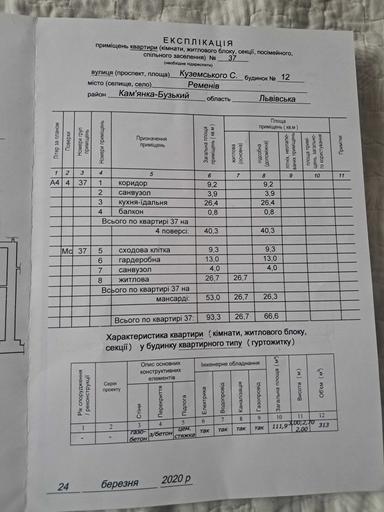 ЕКСПЛІКАЦІЯ
приміщень квартири (кімнати, житлового блоку, секції, посімейного,
спільного заселення) № 37
(необхідне підкреслити)
вулиця (проспект, площа) Куземського С. будинок № 12
місто (селище, село) Ременів
район Кам'янка-Бузький область Львівська
Літер за планом Поверхи Номери груп приміщень Номери приміщень Призначення приміщень Загальна площа приміщень ( кв.м ) Площа приміщень ( кв.м ) житлова (основна) підсобна (допоміжна) Примітки
1 2 3 4 5 6 7 8 9 10 11
А4 4 37 1 коридор 9,2 9,2
2 санвузол 3,9 3,9
3 кухня-їдальня 26,4 26,4
4 балкон 0,8 0,8
Всього по квартирі 37 на
4 поверсі: 40,3 40,3
Мс 37 5 сходова клітка 9,3 9,3
6 гардеробна 13,0 13,0
7 санвузол 4,0 4,0
8 житлова 26,7 26,7
Всього по квартирі 37 на
мансарді: 53,0 26,7 26,3
Всього по квартирі 37: 93,3 26,7 66,6
Характеристика квартири ( кімнати, житлового блоку,
секції ) у будинку квартирного типу ( гуртожитку)
Рік спорудження / реконструкції Серія проекту Опис основних конструктивних елементів Інженерне обладнання Загальна площа ( м² ) Висота ( м ) Об'єм ( м³ )
Стіни Перекриття Підлога Електрика Водопровід Каналізація Газопровід
1 2 3 4 5 6 7 8 9 10 11 12
- - газо-бетон з/бетон цем. стяжка так так так так 111,9 3,00;2,70 2,00 313
24 березня 2020 р